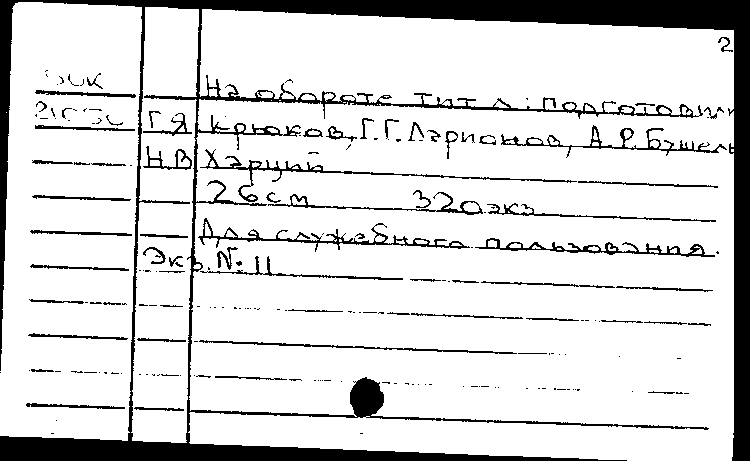 2
На обороте тит л: подготовили
Г.Я. Крюков, Г.Г. Ларионов, А.Р. Бушель
Н.В. Харций
26см 320экз
Для служебного пользования.
Экз. №: 11